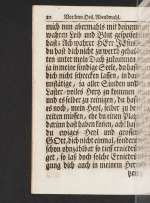 20 Vor dem Heil. Abendmahl.
mich nun abermahls mit deinem
wahren Leib und Blut gespeiset
hast: Ach wahrer HErr JEsu,
du hast dich nicht zu werth gehalten
unter mein Dach zukommen
ja in meine sündige Seele, du hast
dich nicht schrecken lassen, in das
unflätige, zu aller Sünden und
Laster-volles Hertz zu kommen
und es selber zu reinigen, du hast
es noch, mein Heyl, selber zu be-
reiten müssen, ehe du einen Platz
darinn hast haben könen, ach
du ewiges Heyl und grosser
GOtt, dich nicht einmal, sondern
schon unzehlbar so tieff erniedri-
get, so laß doch solche Erniedri-
gung dich auch in meinem Her-
tzen